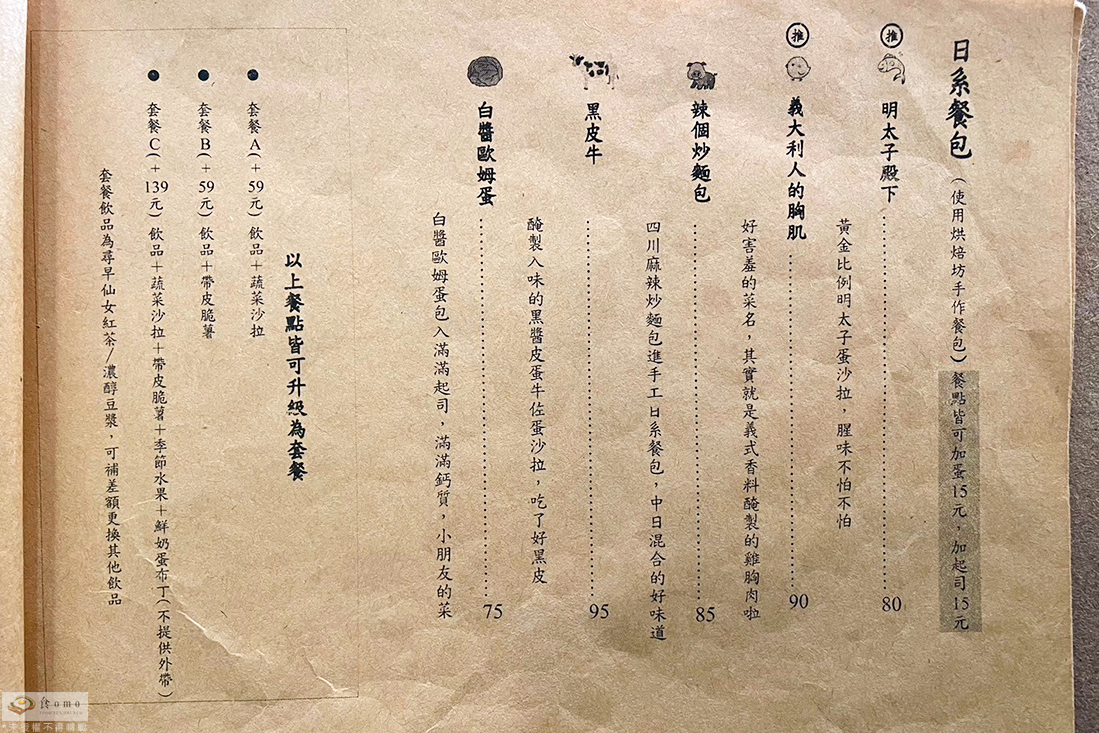 日系餐包(使用烘焙坊手作餐包)餐點皆可加蛋15元,加起司15元
推
明太子殿下 80
黃金比例明太子蛋沙拉,腥味不怕不怕
推
義大利人的胸肌 90
好害羞的菜名,其實就是義式香料醃製的雞胸肉啦
辣個炒麵包 85
四川麻辣炒麵包進手工日系餐包,中日混合的好味道
黑皮牛 95
醃製入味的黑醬皮蛋牛佐蛋沙拉,吃了好黑皮
白醬歐姆蛋 75
白醬歐姆蛋包入滿滿起司,滿滿鈣質,小朋友的菜
以上餐點皆可升級為套餐
● 套餐A(+59元)飲品+蔬菜沙拉
● 套餐B(+59元)飲品+帶皮脆薯
● 套餐C(+139元)飲品+蔬菜沙拉+帶皮脆薯+季節水果+鮮奶蛋布丁(不提供外帶)
套餐飲品為尋早仙女紅茶/濃醇豆漿,可補差額更換其他飲品
omo